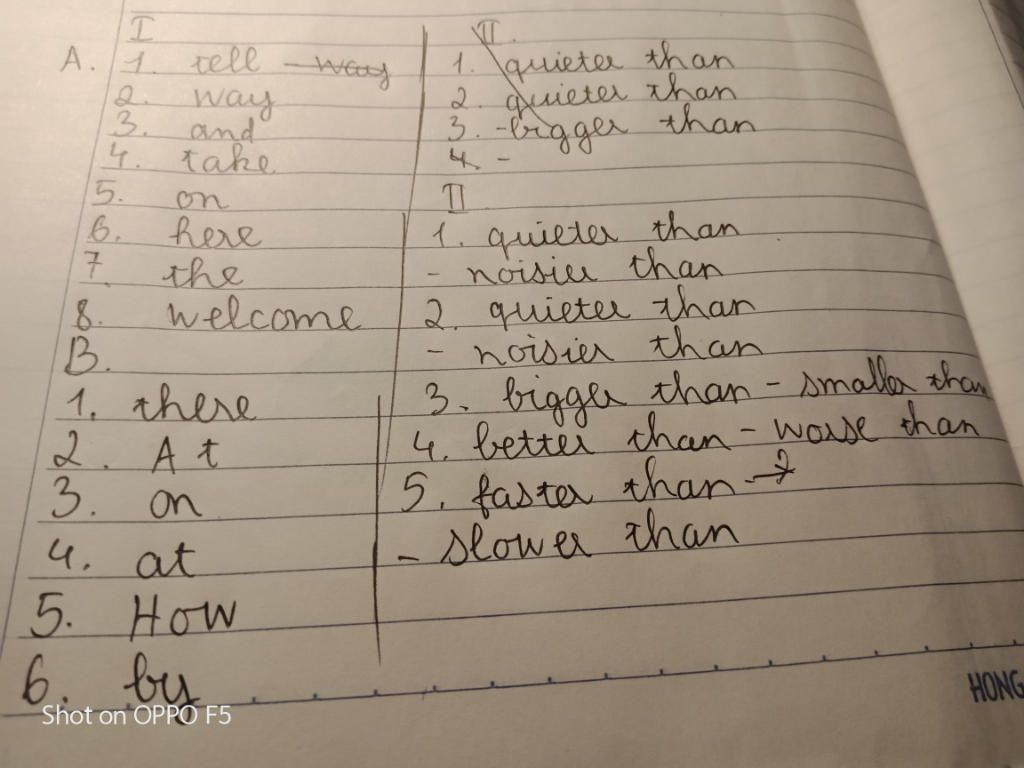 I
A. 1. tell way
2. way
3. and
4. take
5. on
6. here
7. the
8. welcome
B.
1. there
2. At
3. on
4. at
5. How
6. by
II.
1. quieter than
2. quieter than
3. - bigger than
4. -
II
1. quieter than
- noisier than
2. quieter than
- noisier than
3. bigger than - smaller than
4. better than - worse than
5. faster than
- slower than
HONG
Shot on OPPO F5